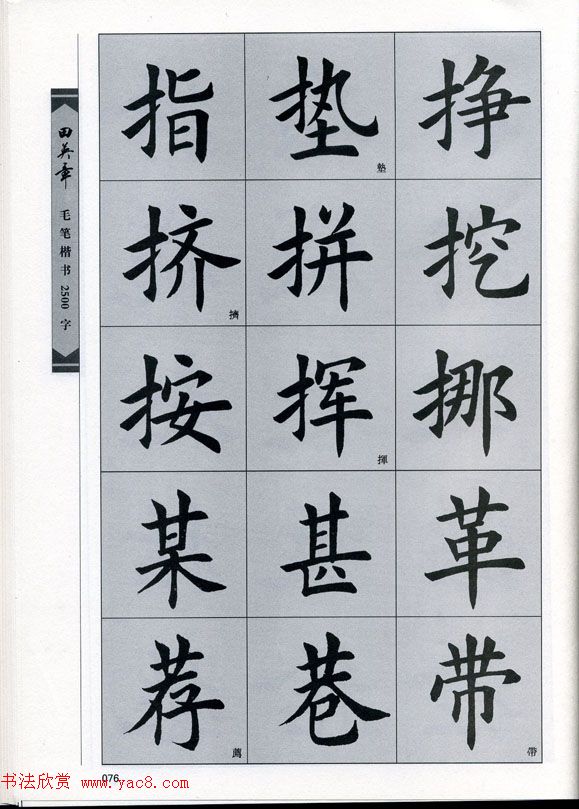 田英章
毛笔楷书2500字
指 垫 墊 挣
挤 擠 拼 挖
按 挥 揮 挪
某 甚 革
荐 薦 巷 带 帶
076
书法欣赏 www.yac8.com